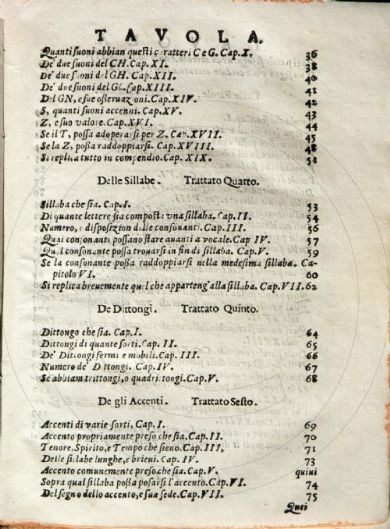 TAVOLA.
Quanti suoni abbian questi caratteri C e G. Cap. X. 36
De' due suoni del CH. Cap. XI. 38
De' due suoni del GH. Cap. XII. 40
De' due suoni del GL. Cap. XIII. 41
Del GN, e sue osservazioni. Cap. XIV. 42
S, quanti suoni accenni. Cap. XV. 43
Z, e suo valore. Cap. XVI. 44
Se il T, possa adoperarsi per Z. Cap. XVII. 45
Se la Z, possa raddoppiarsi. Cap. XVIII. 48
Si replica tutto in compendio. Cap. XIX. 51
Delle Sillabe. Trattato Quarto.
Sillaba che sia. Cap. I. 53
Di quante lettere sia composta una sillaba. Cap. II. 54
Numero, e disposizion delle consonanti. Cap. III. 56
Quai consonanti possano stare avanti a vocale. Cap. IV. 57
Qual consonante possa trovarsi in fin di sillaba. Cap. V. 59
Se la consonante possa raddoppiarsi nella medesima sillaba. Ca-
pitolo VI. 60
Si replica brevemente quel che apparteng' alla sillaba. Cap. VII. 62
De Dittongi. Trattato Quinto.
Dittongo che sia. Cap. I. 64
Dittongi di quante sorti. Cap. II. 65
De' Dittongi fermi e mobili. Cap. III. 66
Numero de' Dittongi. Cap. IV. 67
Se abbiam trittongi, o quadrittongi. Cap. V. 68
De gli Accenti. Trattato Sesto.
Accenti di varie sorti. Cap. I. 69
Accento propriamente preso che sia. Cap. II. 70
Tenore, Spirito, e Tempo che sieno. Cap. III. 71
Delle sillabe lunghe, e brievi. Cap. IV. 73
Accento comunemente preso che sia. Cap. V. quivi
Sopra qual sillaba possa posarsi l'accento. Cap. VI. 74
Del segno dello accento, e sua sede. Cap. VII. 75